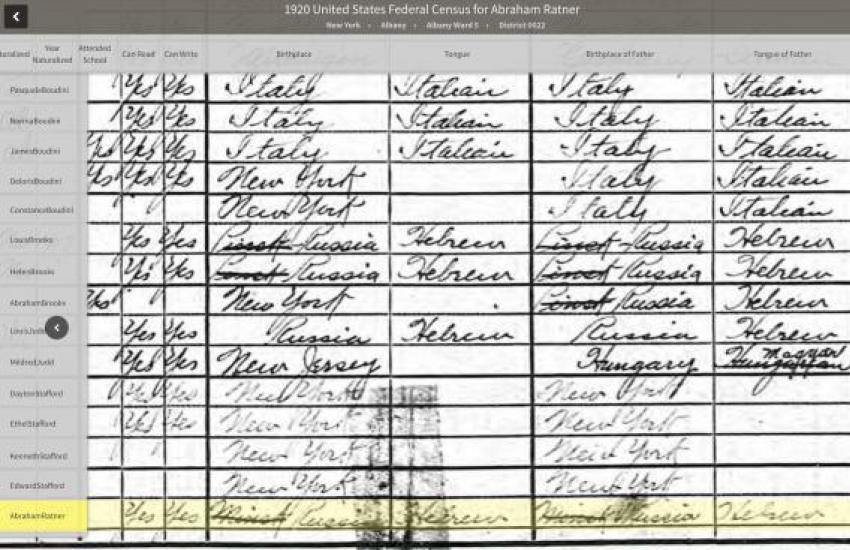 1920 United States Federal Census for Abraham Ratner
New York › Albany › Albany Ward 5 › District 0022
Year Naturalized Attended School Can Read Can Write Birthplace Tongue Birthplace of Father Tongue of Father
PasqualeBoudini Yes Yes Italy Italian Italy Italian
Boudini Yes Yes Italy Italian Italy Italian
JamesBoudini Yes Yes Yes Italy Italian Italy Italian
DolorisBoudini Yes Yes Yes New York Italy Italian
ConstanceBoudini New York Italy Italian
LouisBrooks Yes Yes Russia Hebrew Russia Hebrew
HelenBrooks Yes Yes Russia Hebrew Russia Hebrew
AbrahamBrooks Yes New York Russia Hebrew
Yes Yes Russia Hebrew Russia Hebrew
MildredJudd Yes Yes New Jersey Hungary Magyar
DaytonStafford Yes Yes New York New York
EthelStafford Yes Yes New York New York
KennethStafford New York New York
EdwardStafford New York New York
AbrahamRatner Yes Yes Minsk Russia Hebrew Minsk Russia Hebrew